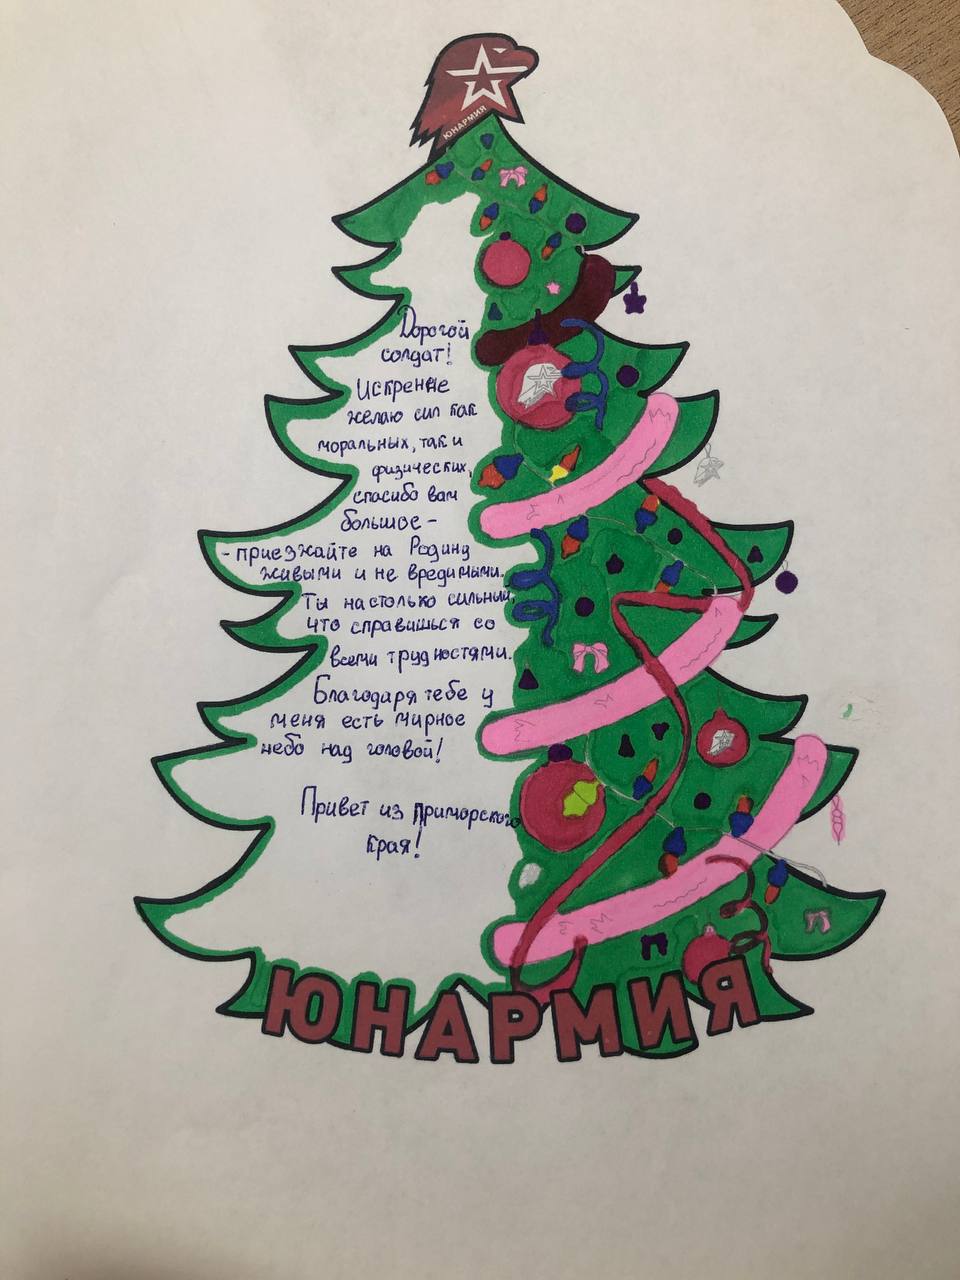 ЮНАРМИЯ
Дорогой
солдат!
Искренне
желаю сил как
моральных, так и
физических,
спасибо вам
большое -
- приезжайте на Родину
живыми и не вредимыми.
Ты настолько сильный,
что справишься со
всеми трудностями.
Благодаря тебе у
меня есть мирное
небо над головой!
Привет из приморского
края!
ЮНАРМИЯ